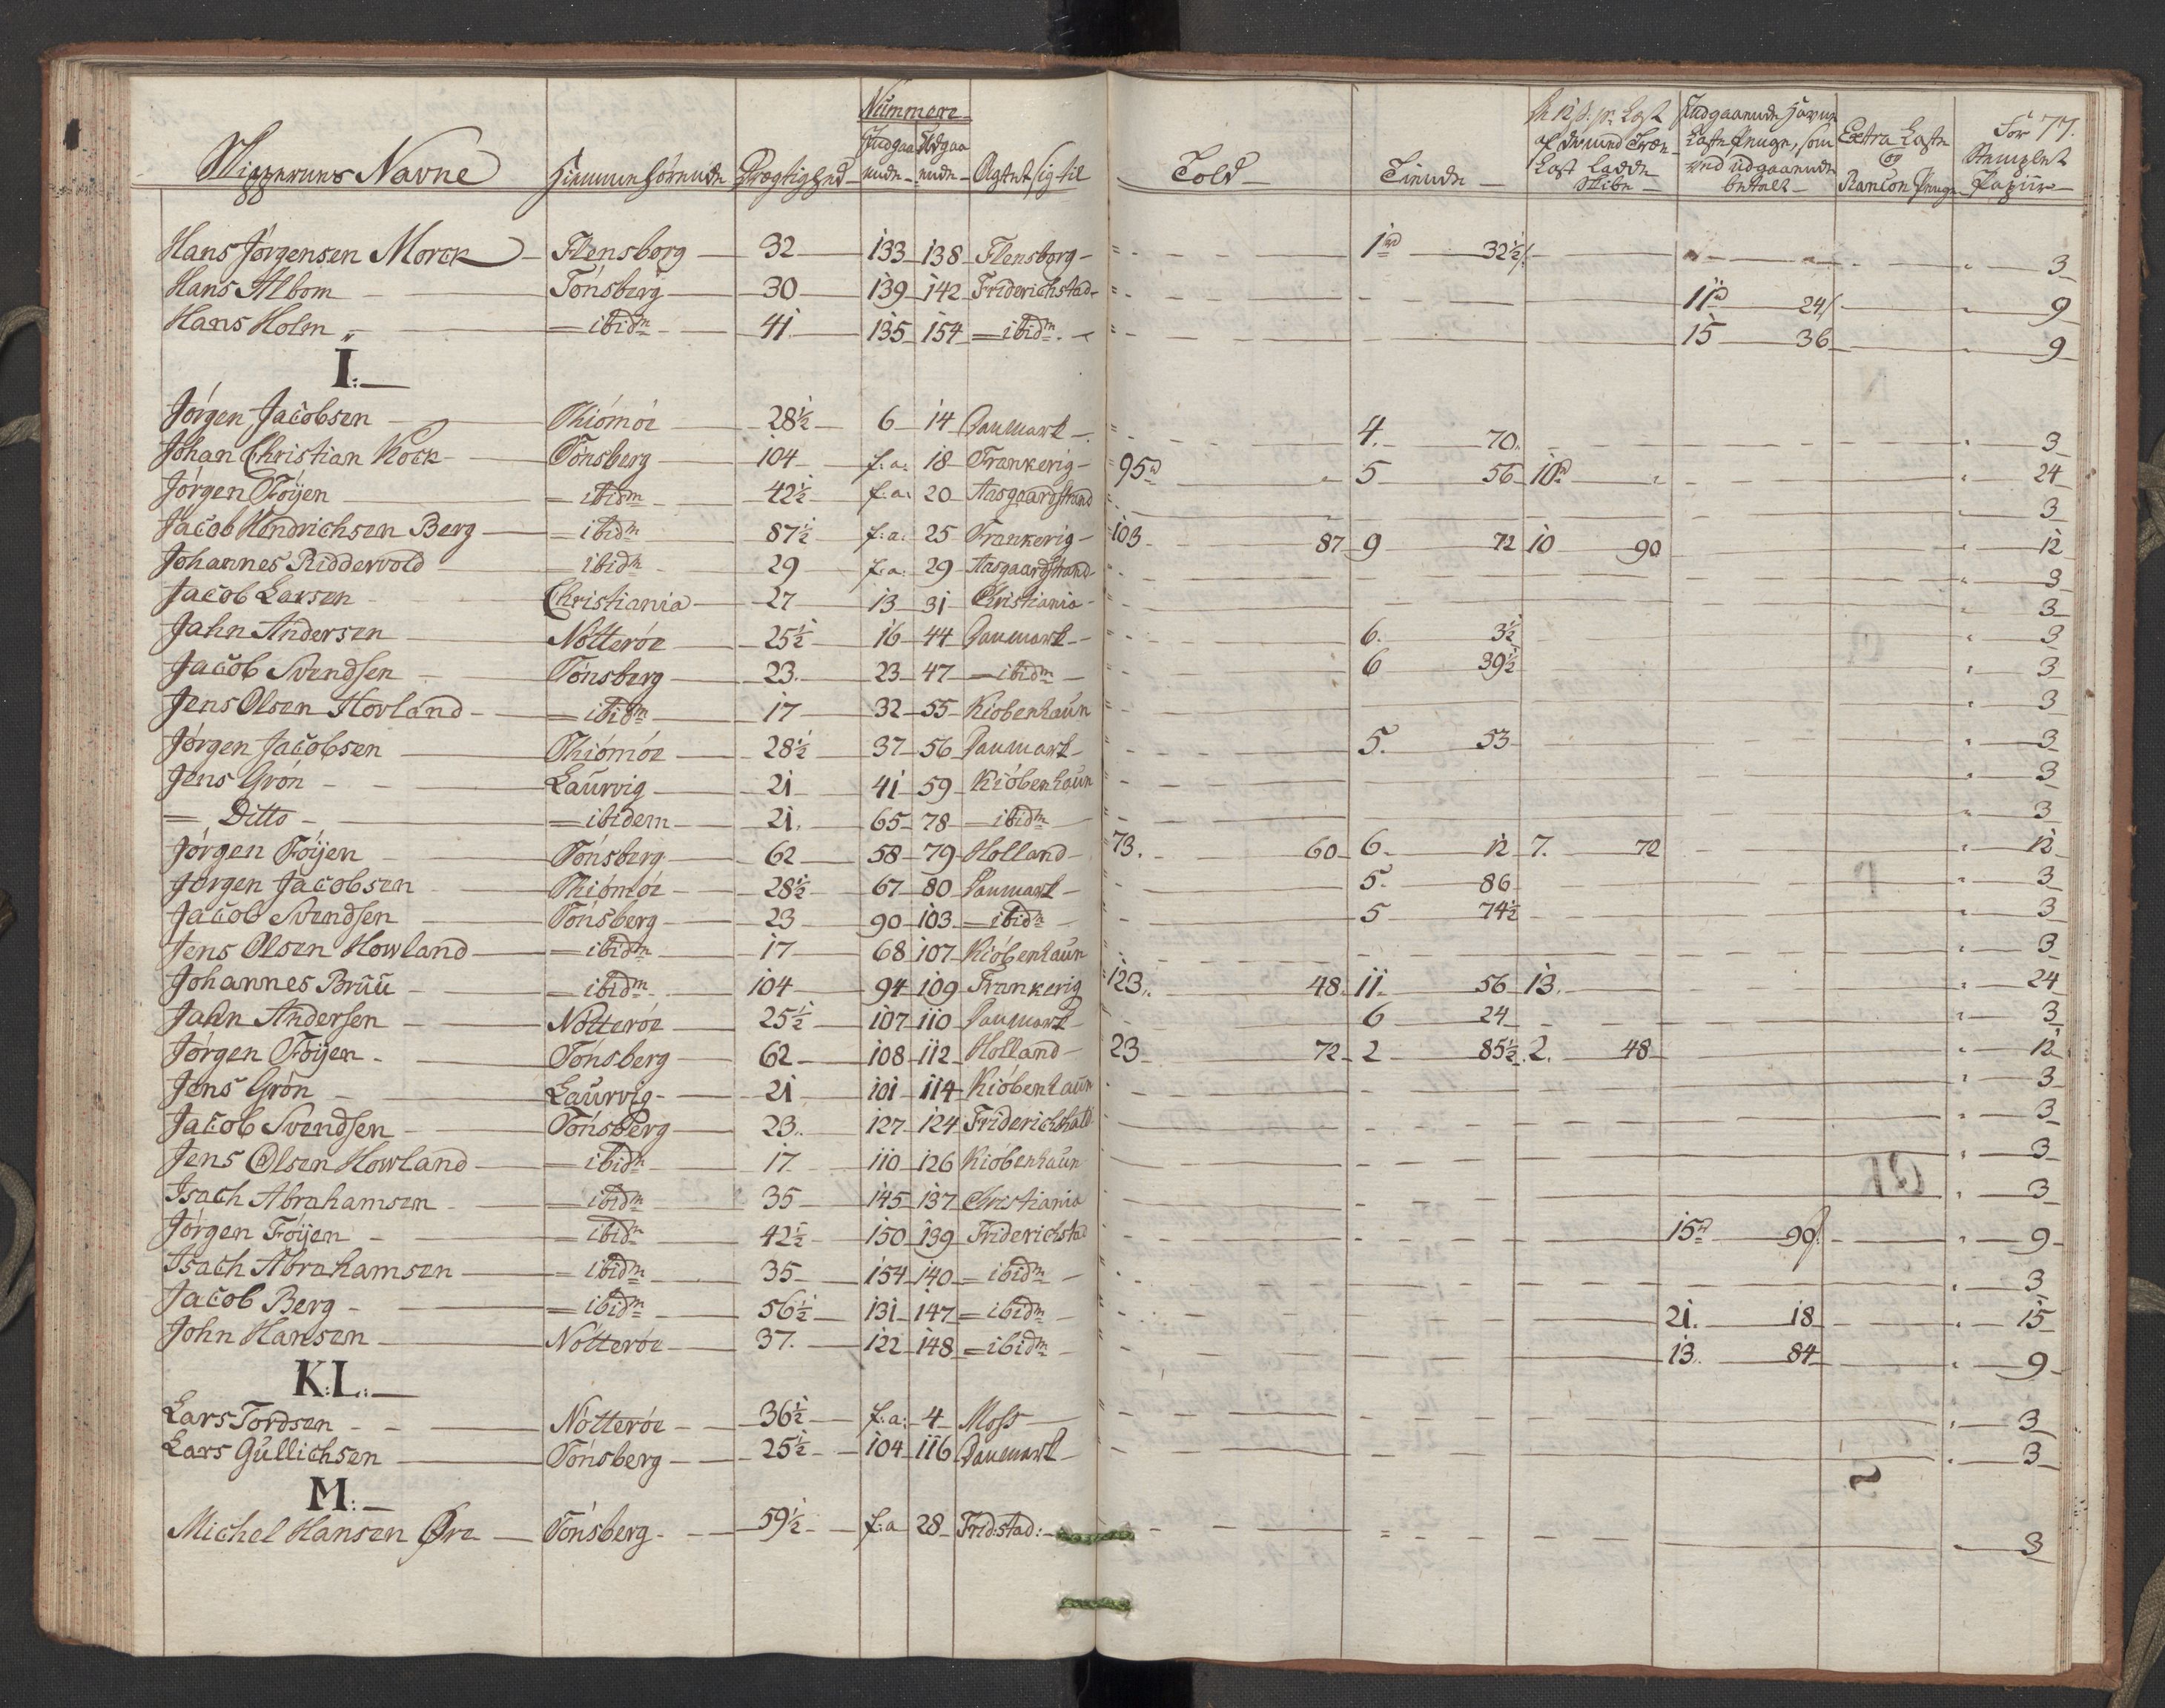 Nummere
Skippernes Navne Hiemmehörende Drægtighed Indgaaende Udgaaende Agtet sig til Told Tiende à 12 s: pr Læst af de med Træ- Last Ladde Skibe Indgaaende havne Læste Penge, som ved udgaaende betalt Extra Læste og Rancon Penge For Stemplet Papiir 77.
Hans Jörgensen Morck Flensborg 32 133 138 Flensborg 1 rd 32½ 3
Hans Albom Tönsberg 30 139 142 Friderichstad 11 rd 24 9
Hans Holm ibidm 41 135 154 ibidm 15 36 9
I:
Jörgen Jacobsen Thiömöe 28½ 6 14 Danmark 4. 70. 3
Johan Christian Kock Tönsberg 104 f:a: 18 Frankerig 95 rd 5 56 10 rd 24
Jörgen Föÿen ibidm 42½ f:a: 20 Aasgaardstrand 3
Jacob Hendrichsen Berg ibidm 87½ f:a: 25 Frankerig 103 87 9 72 10 90 12
Johannes Riddervold ibidm 29 f:a: 29 Aasgaardstrand 3
Jacob Larsen Christiania 27 13 31 Christiania 3
Jahn Andersen Nötteröe 25½ 16 44 Danmark 6. 3½ 3
Jacob Svendsen Tönsberg 23. 23 47 ibidm 6 39½ 3
Jens Olsen Hovland ibidm 17 32 55 Kiöbenhaun 3
Jörgen Jacobsen Thiömöe 28½ 37 56 Danmark 5. 53 3
Jens Grön Laurvig 21 41 59 Kiöbenhaun 3
= Ditto ibidem 21. 65 78 ibidm 3
Jörgen Föÿen Tönsberg 62 58 79 Holland 73. 60 6. 12 7. 72 12
Jörgen Jacobsen Thiömöe 28½ 67 80 Danmark 5. 86 3
Jacob Svendsen Tönsberg 23 90 103 ibidm 5 74½ 3
Jens Olsen Howland ibidm 17 68 107 Kiöbenhaun 3
Johannes Bruu ibidm 104 94 109 Frankerig 123. 48 11. 56 13. 24
Jahn Andersen Nötteröe 25½ 107 110 Danmark 6 24 3
Jörgen Föijen Tönsberg 62 108 112 Holland 23 72 2 85½ 2. 48 12
Jens Grön Laurvig 21 101 114 Kiöbenhaun 3
Jacob Svendsen Tönsberg 23. 127 124 Friderichhald 3
Jens Olsen Howland ibidm 17. 110 126 Kiöbenhaun 3
Isach Abrahamsen ibidm 35 145 137 Christiania 3
Jörgen Föijen ibidm 42½ 150 139 Friderichstad 15 rd 90 9
Isach Abrahamsen ibidm 35 154 140 ibidm 3
Jacob Berg ibidm 56½ 131 147 ibidm 21. 18 15
John Hansen Nötteröe 37. 122 148 ibidm 13. 84 9
K:L:
Lars Tordsen Nötteröe 36½ f:a: 4 Moss 3
Lars Gullichsen Tönsberg 25½ 104 116 Danmark 3
M:
Michel Hansen Øre Tönsberg 59½ f:a 28 Fridstad: 3